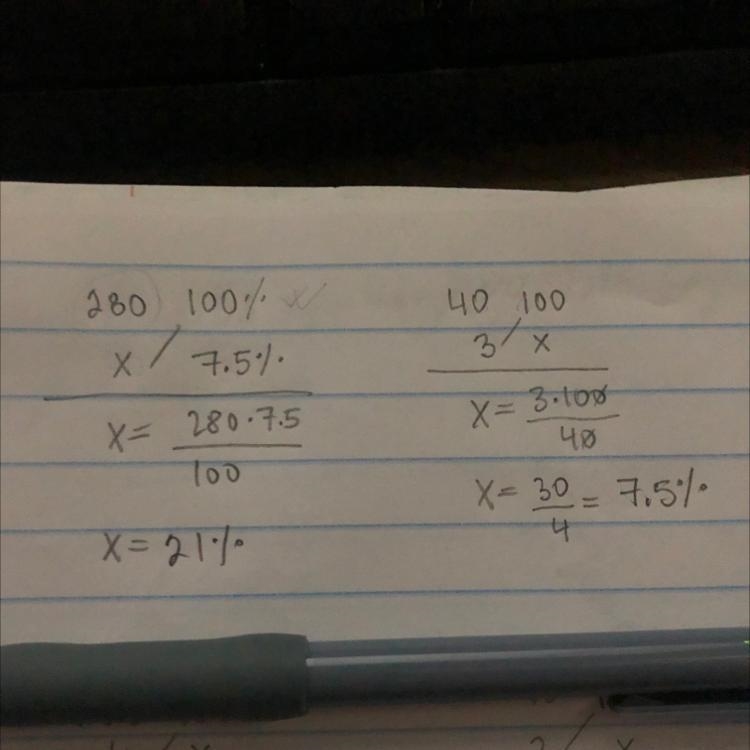 280 100%
x / 7.5%
x = 280·7.5
100
x = 21%
40 100
3 / x
x = 3·100
40
x = 30 = 7.5%
4